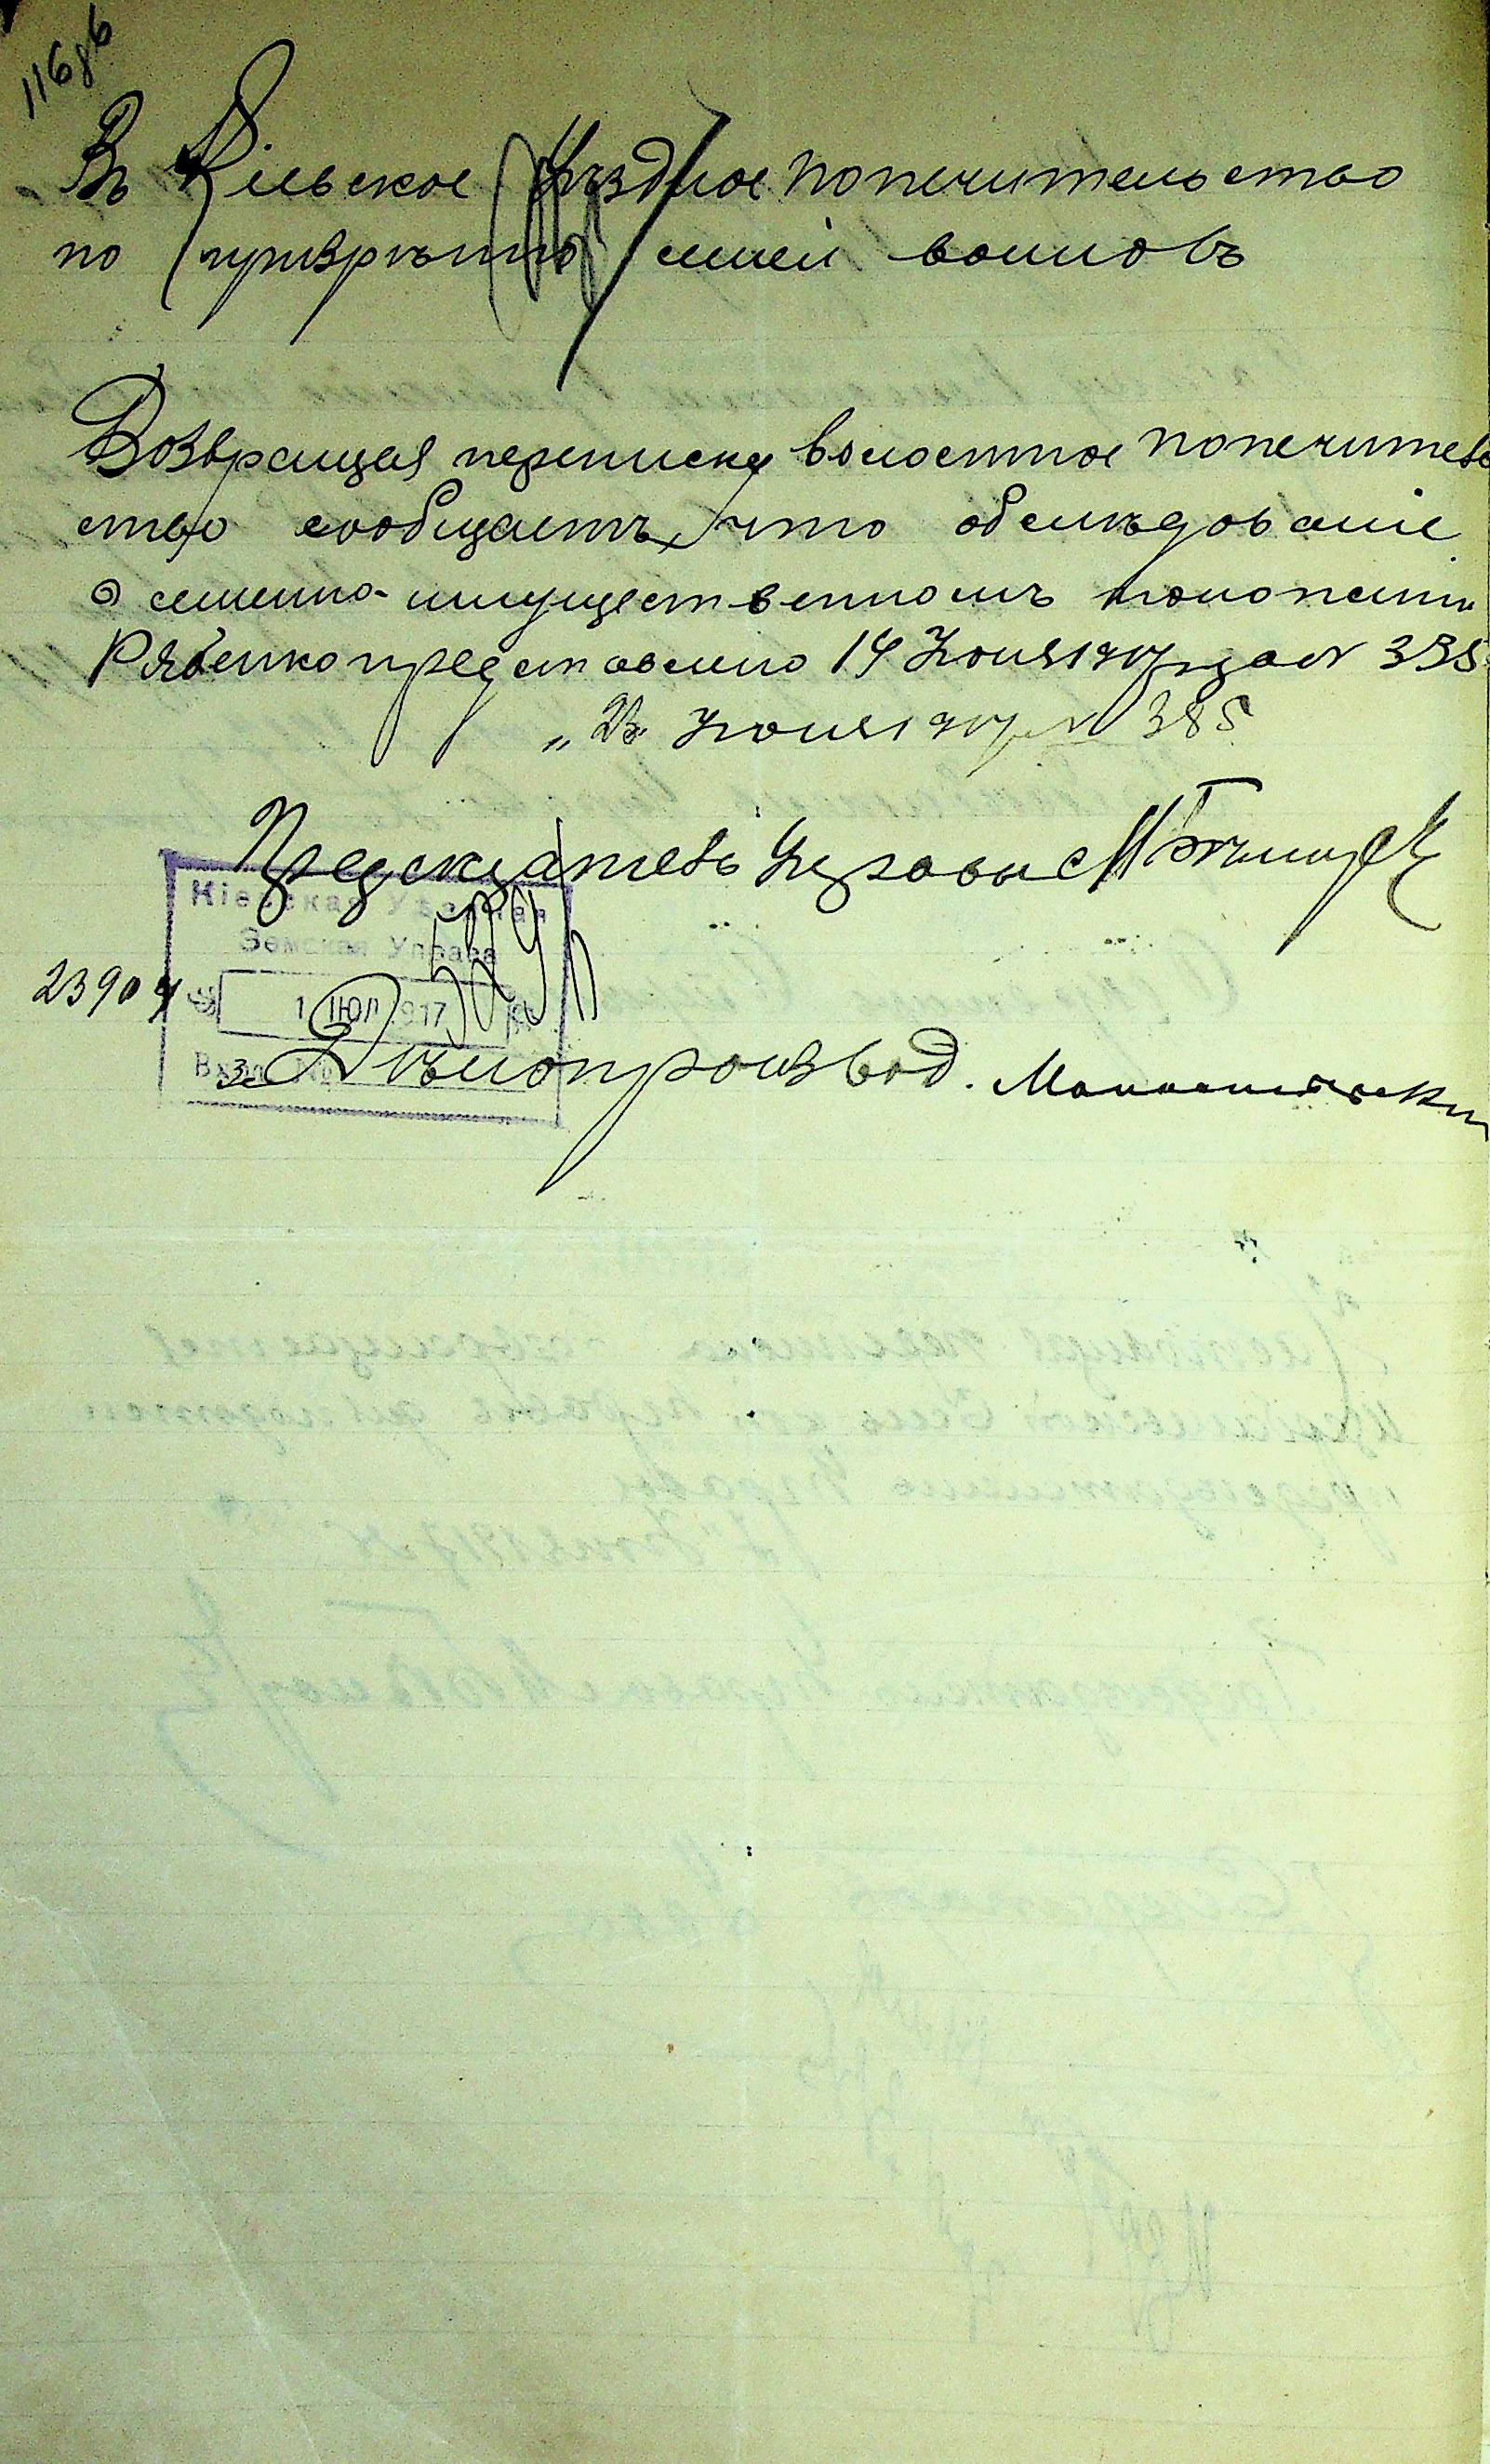 116 об
Въ Кіевское Уѣздное Попечительство
по призрѣнію семей воиновъ
Возвращая переписку волостное Попечитель
ство сообщаетъ, что обслѣдованіе
о семейно-имущественномъ положеніи
Рябенко представлено 14 Іюня 1917 г. за № 335
„28“ Іюня 1917 г. № 385
Предсѣдатель Управы
Кіевская Уѣздная
Земская Управа
23904
1 ІЮЛ 1917
Вход.
За Дѣлопроизвод.